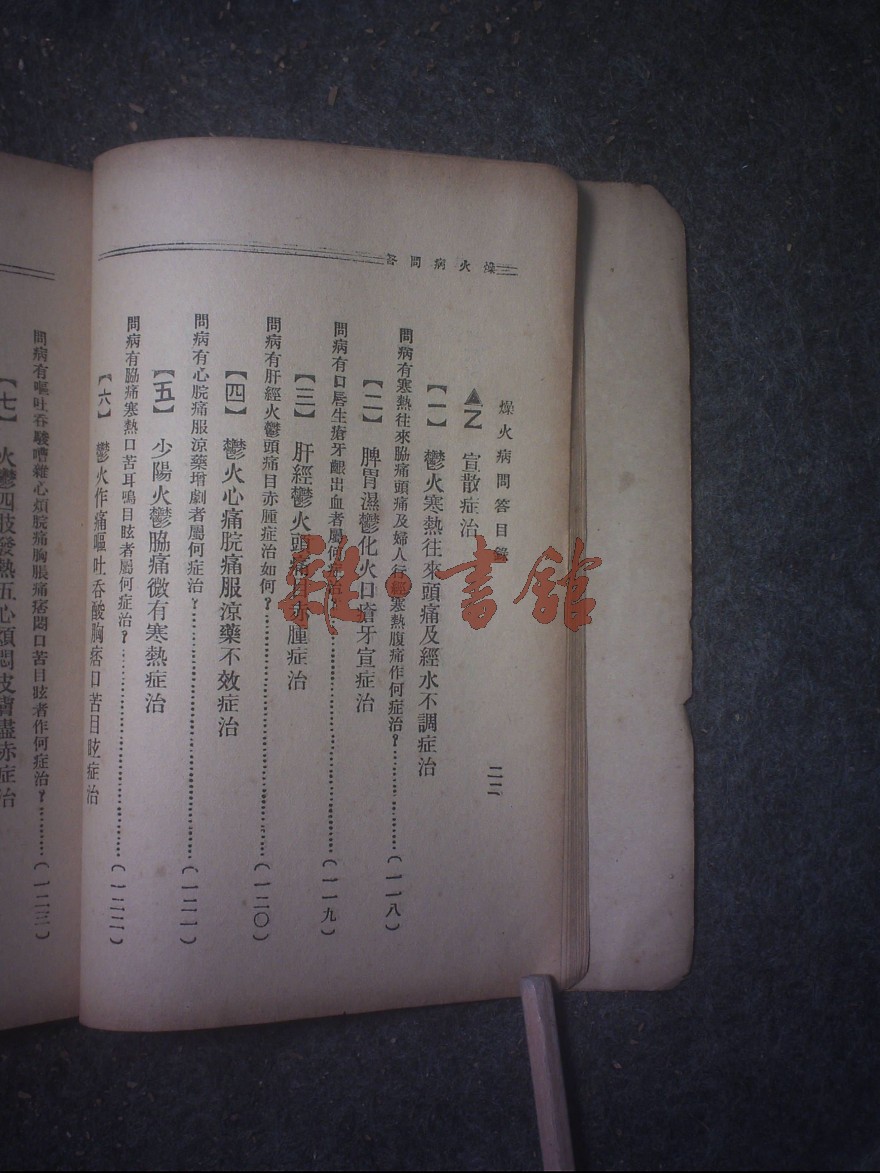 燥火病問答
燥火病問答目錄 二二
▲乙 宣散症治
【一】 鬱火寒熱往來頭痛及經水不調症治
問病有寒熱往來脇痛頭痛及婦人行經寒熱腹痛作何症治？………………(一一八)
【二】 脾胃濕鬱化火口瘡牙宣症治
問病有口唇生瘡牙齦出血者屬何症治？………………(一一九)
【三】 肝經鬱火頭痛目赤腫症治
問病有肝經火鬱頭痛目赤腫症治如何？………………(一二〇)
【四】 鬱火心痛脘痛服涼藥不效症治
問病有心脘痛服涼藥增劇者屬何症治？………………(一二一)
【五】 少陽火鬱脇痛微有寒熱症治
問病有脇痛寒熱口苦耳鳴目眩者屬何症治？………………(一二二)
【六】 鬱火作痛嘔吐吞酸胸痞口苦目眩症治
問病有嘔吐吞酸嘈雜心煩脘痛胸脹痞悶口苦目眩者作何症治？………(一二三)
【七】 火鬱四肢發熱五心煩悶皮膚盡赤症治
雜·書館